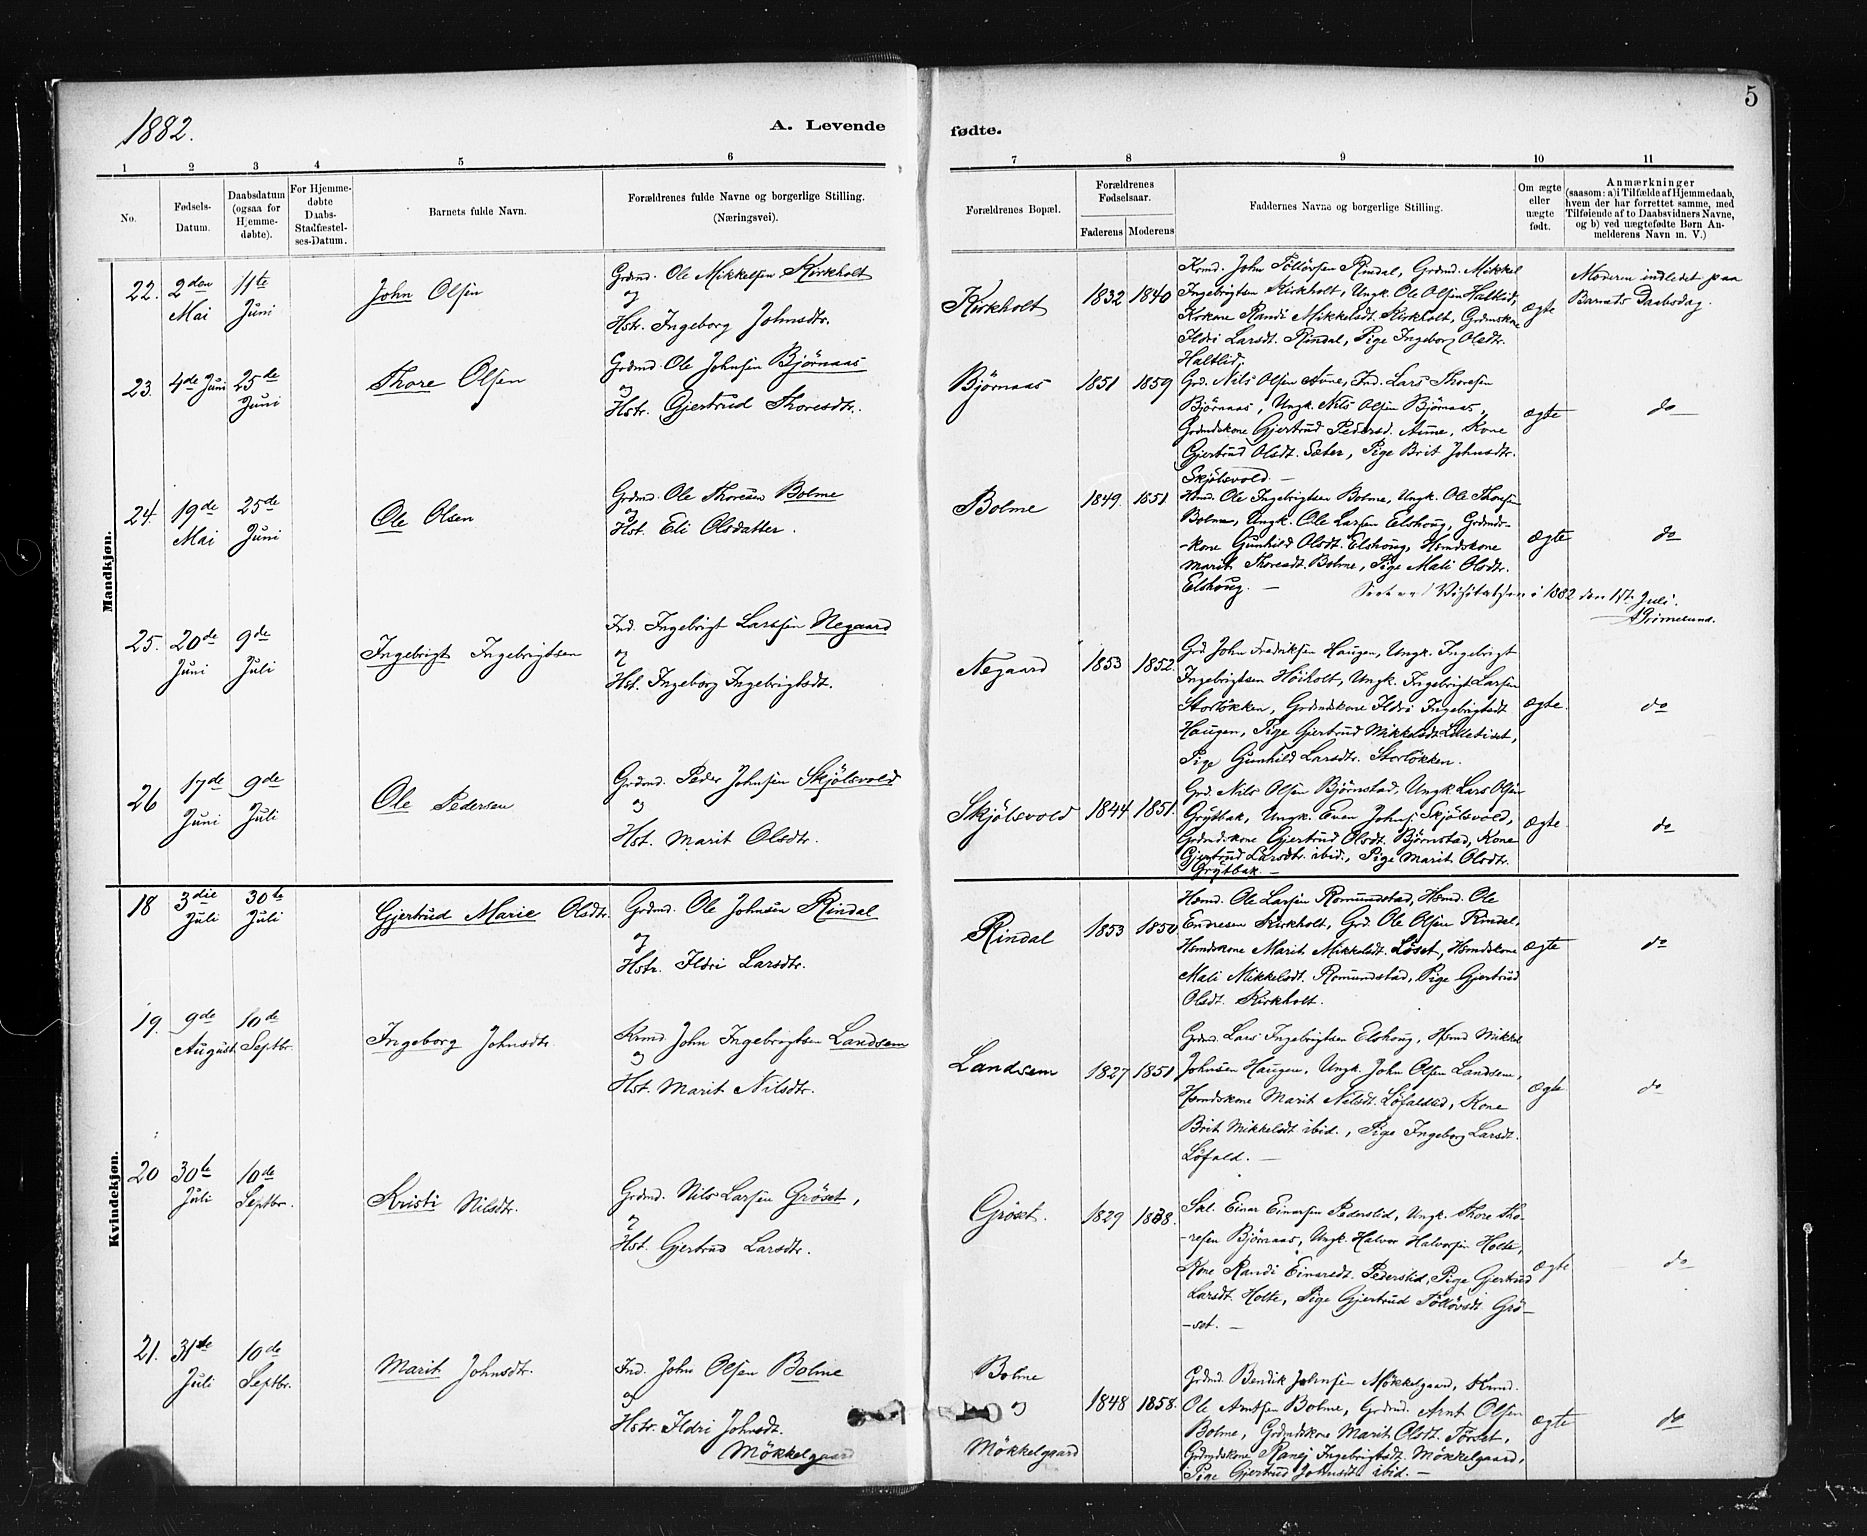 1882.
A. Levende
fødte.
5
1
2
3
4
5
6
7
8
9
10
11
No.
Fødsels-
Datum.
Daabsdatum
(ogsaa for
Hjemme-
døbte).
For Hjemme-
døbte
Daabs-
Stadfæstel-
ses-Datum.
Barnets fulde Navn.
Forældrenes fulde Navne og borgerlige Stilling.
(Næringsvei).
Forældrenes Bopæl.
Forældrenes
Fødselsaar.
Faderens
Moderens
Faddernes Navne og borgerlige Stilling.
Om ægte
eller
uægte
født.
Anmærkninger
(saasom: a) i Tilfælde af Hjemmedaab,
hvem der har forrettet samme, med
Tilføiende af to Daabsvidners Navne,
og b) ved uægtefødte Børn An-
melderens Navn m. V.)
Mandkjøn.
22.
2den
Mai
11te
Juni
John Olsen
Grdmd. Ole Mikkelsen Kirkholt
og
Hstr. Ingeborg Johnsdtr.
Kirkholt
1832
1840
Krmd. John Tollövsen Rindal, Grdmd. Mikkel
Ingebrigtsen Kirkholt, Ungk. Ole Olsen Haltlid,
Kone Randi Mikkelsdt. Kirkholt, Grdmskone
Ildri Larsdt. Rindal, Pige Ingeborg Olsdtr.
Haltlid.
ægte
Moderen indledet paa
Barnets Daabsdag.
23.
4de Juni
25de
Juni
Thore Olsen
Grdmd Ole Johnsen Bjørnaas
og
Hstr. Gjertrud Thoresdtr.
Bjørnaas
1851
1859
Grd. Nils Olsen Aune, Ind. Lars Thoresen
Bjørnaas, Ungk. Nils Olsen Bjørnaas,
Grdmdskone Gjertrud Pedersd. Aune, Kone
Gjertrud Olsdt. Sæter, Pige Brit Johnsdtr.
Skjölsvold. —
ægte
do
24.
19de
Mai
25de
Juni
Ole Olsen
Grdmd. Ole Thoresen Bolme
og
Hst. Eli Olsdatter.
Bolme
1849.
1851
Hmd. Ole Ingebrigtsen Bolme, Ungk. Ole Thoresen
Bolme, Ungk. Ole Larsen Elshoug, Grdmds-
-kone Gunhild Olsdt. Elshoug, Hsmdskone
Marit Thoresdt. Bolme, Pige Mali Olsdtr.
Elshoug. —
ægte
do
i 1882 den 17de Juli.
25.
20de
Juni
9de
Juli
Ingebrigt Ingebrigtsen
Ind. Ingebrigt Larssen Negaard
og
Hst. Ingeborg Ingebrigtsdt.
Negaard
1853
1852.
Grd John Fredriksen Haugen, Ungk. Ingebrigt
Ingebrigtsen Höiholt, Ungk. Ingebrigt Larsen
Storlökken, Grdmdskone Ildri Ingebrigtsdt
Haugen, Pige Gjertrud Mikkelsdt.
Pige Gunhild Larsdtr. Storlökken.
ægte.
do
26
17de
Juni
9de
Juli
Ole Pedersen
Grdmd. Peder Johnsen Skjölsvold
og
Hst. Marit Olsdtr.
Skjölsvold
1844
1851.
Grd. Nils Olsen Bjørnstad, Ungk Lars Olsen
Grytbak, Ungk. Even Johnsen Skjölsvold,
Grdmd.kone Gjertrud Olsdt. Björnstad, Kone
Gjertrud Larsdtr. ibid., Pige Marit Olsdtr.
Grytbak. —
ægte
do
Kvindekjøn.
18
3die
Juli
30te
Juli
Gjertrud Marie Olsdtr.
Grdmd. Ole Johnsen Rindal
og
Hstr. Ildri Larsdtr.
Rindal
1853
1850
Hsmd. Ole Larsen Romundstad, Hsmd. Ole
Endresen Kirkholt, Grd. Ole Olsen Rindal,
Hsmdskone Marit Mikkelsdt. Löset, Hsmdskone
Mali Mikkelsdt. Romundstad, Pige Gjertrud
Olsdt. Kirkholt.
ægte
do
19.
9de
August
10de
Septbr.
Ingeborg Johnsdtr
Krmd John Ingebrigtsen Landsem
og
Hst. Marit Nilsdtr.
Landsem
1827
1851
Grdmd. Lars Ingebrigtsen Elshoug, Hsmd Mikkel
Johnsen Haugen, Ungk. John Olsen Landsem,
Hsmdskone Marit Nilsdt. Löfaldlid, Kone
Brit Mikkelsdt ibid., Pige Ingeborg Larsdt.
Löfald. —
ægte
do
20
30te
Juli
10de
Septbr.
Kristi Nilsdtr.
Grdmd. Nils Larsen Gröset,
og
Hst. Gjertrud Larsdtr.
Gröset.
1829
1838.
Skl. Einar Einarsen Pederslid, Ungk. Thore Tho-
-resen Bjørnaas, Ungk. Halvor Halvorsen Holte,
Kone Randi Einarsdt. Pederslid, Pige Gjertrud
Larsdt. Holte, Pige Gjertrud Tollövsdt. Grö-
-set. —
ægte
do
21.
31te
Juli
10de
Septbr.
Marit Johnsdtr.
Ind. John Olsen Bolme
og
Hstr. Ildri Johnsdt.
Mökkelgaard
Bolme
og
Mökkelgaard
1848
1858.
Grdmd. Bendik Johnsen Mökkelgaard, Krmd.
Ole Arntsen Bolme, Grdmd. Arnt Olsen
Bolme, Grdmdskone Marit Olsdt. Törset,
Grdmdskone Ranej Ingebrigtsdt. Mökkelgaard,
Pige Gjertrud Johnsdt ibid. —
ægte
do